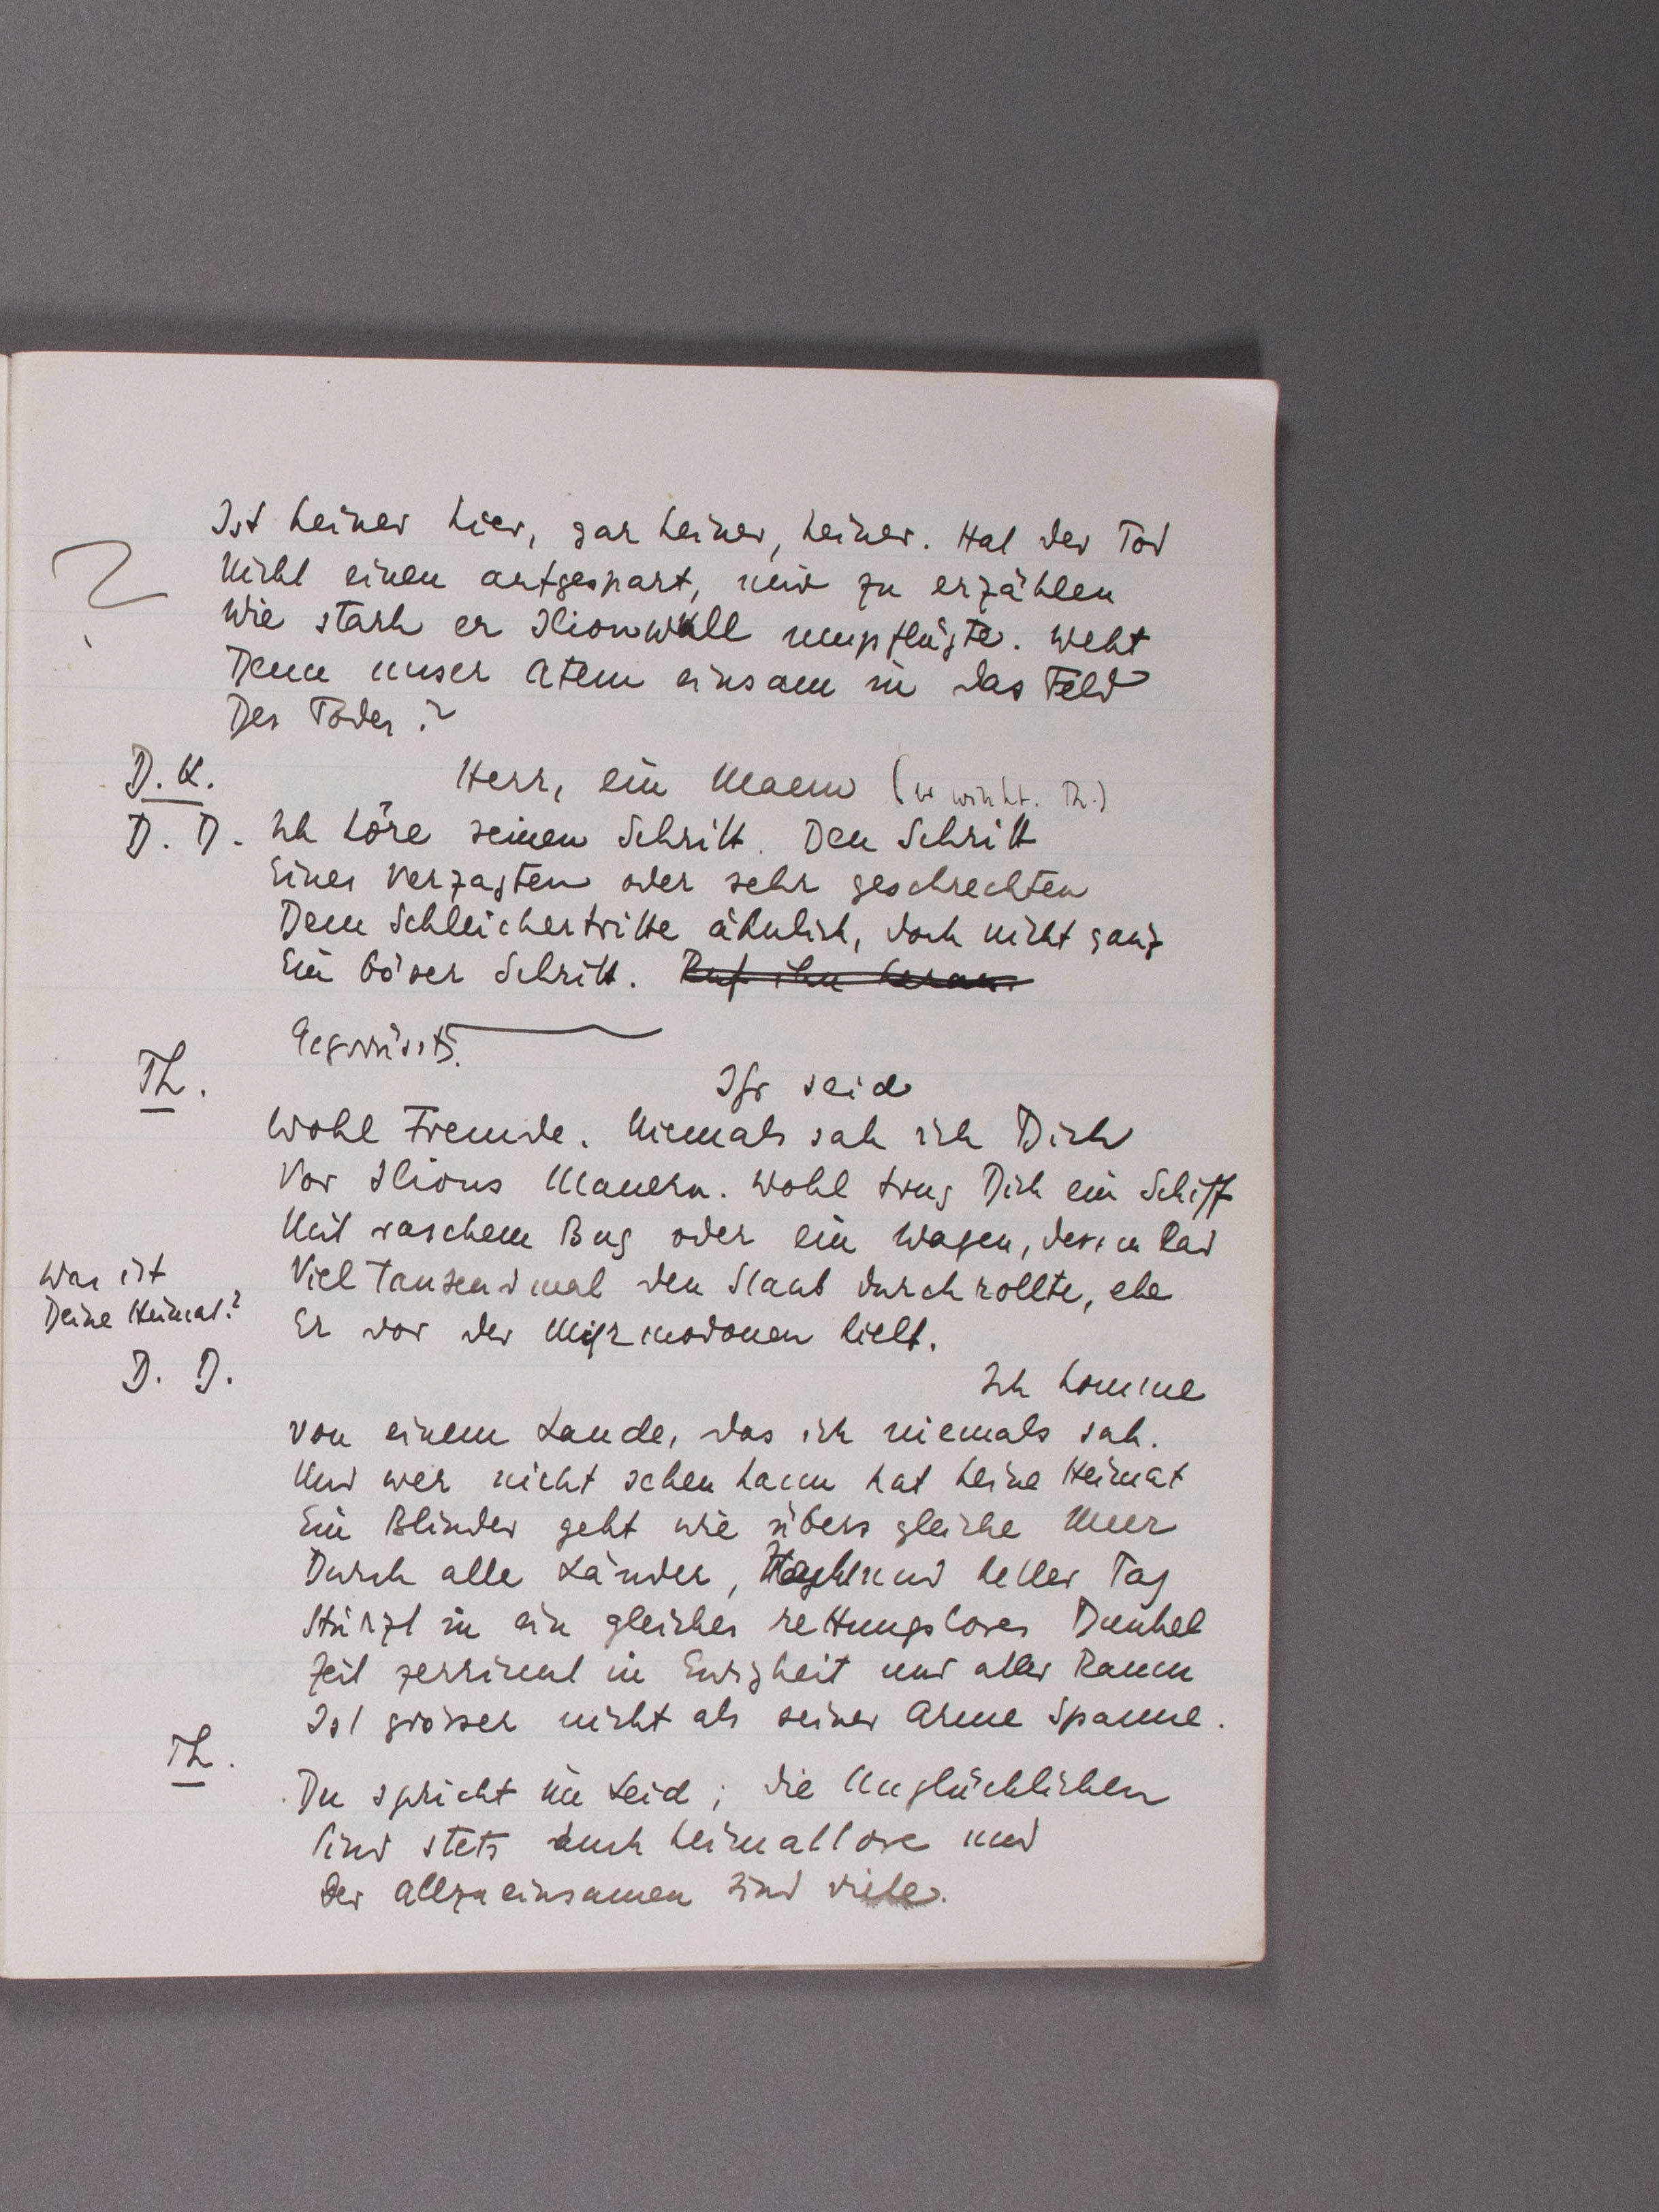 Ist keiner hier, gar keiner, keiner. Hat der Tod
Nicht einen aufgespart, mir zu erzählen
Wie stark er Ilionwall umpflügte. Weht
Denn unser Atem einsam in das Feld
Des Todes?
D. K. Herr, ein Mann (er winkt. Th.)
D. D. Ich höre seinen Schritt. Den Schritt
Eines Verzagten oder sehr geschreckten
Dem Schleichertritte ähnlich, doch nicht ganz
Ein böser Schritt. Ruf ihn heran.
Gegrüsst
Th. Ihr seid
Wohl Fremde. Niemals sah ich Dich
Vor Ilions Mauern. Wohl trug Dich ein Schiff
Mit raschem Bug oder ein Wagen, dessen Rad
Viel Tausendmal den Staub durchrollte, ehe
Er vor der Myrmodonen hielt.
Was ist
Deine Heimat?
D. D. Ich komme
von einem Lande, das ich niemals sah.
Und wer nicht sehen kann hat keine Heimat
Ein Blinder geht wie übers gleiche Meer
Durch alle Länder, Nacht und heller Tag
Stürzt in ein gleiches rettungsloses Dunkel
Zeit zerrinnt in Ewigheit und aller Raum
Ist grösser nicht als seiner Arme Spanne.
Th. Du spricht im Leid; die Unglücklichen
Sind stets auch heimatlose und
Der Allzueinsamen sind viele.